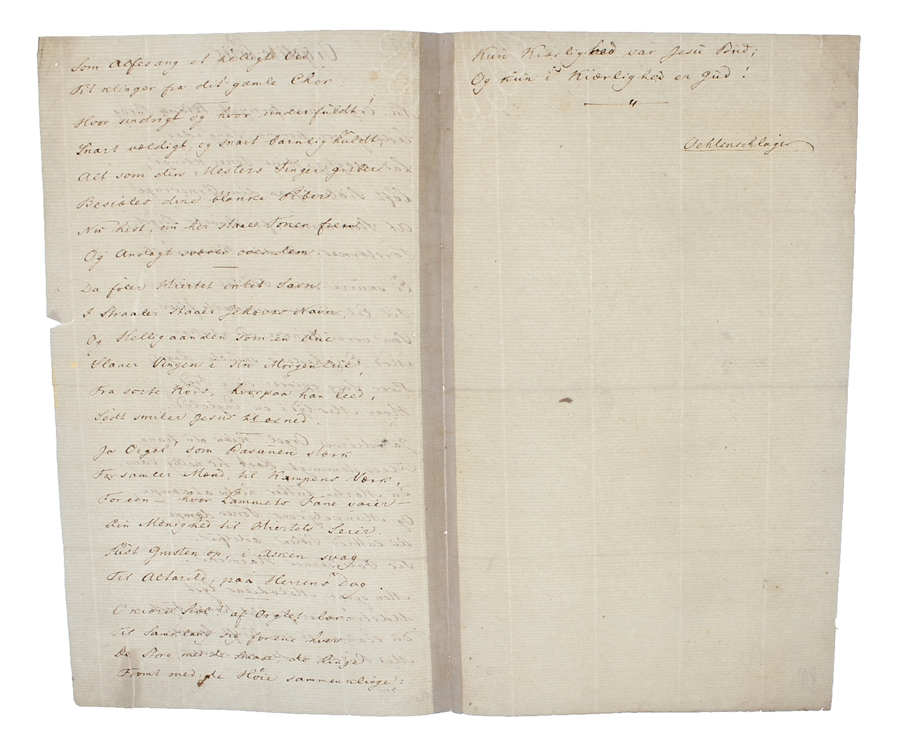 Som Alfesang et helligt Ord
Til klinger fra dit gamle Chor
Hvor sindrigt og hvor underfuldt!
Snart vældigt og snart barnlig huldt
Alt som din Mesters Finger griber
Besiæles dine blanke Piber
Nu hist, nu her staaer Toner frem
Og Andagt svæver over dem.
Da føler Hiertet intet Savn
I Straaler staaer Jehovas Navn
Og Helligaanden som en Due
Slaaer Vingen i sin Morgenlue,
Fra sorte Kors, hvorpaa han leed,
Sødt smiler Jesus ned.
Ja Orgel som Basunen stærk
Forsamler Mænd til Kampens Værk,
Foreen — hvor Lammets Fane vaier —
Din Menighed til Hiertets Seier
Pust Gnisten op, i Asken svag,
Til Altarild, paa Herrens Dag.
O kiære Siæl af Orglet lær
Til Samklang sig forene hver
De Store med de Smaae, de Ringe
Fromt med de Høie sammenklinge:
Kun Kiærlighed var Jesu Bud;
Og kun i Kiærlighed er Gud!
Oehlenschläger